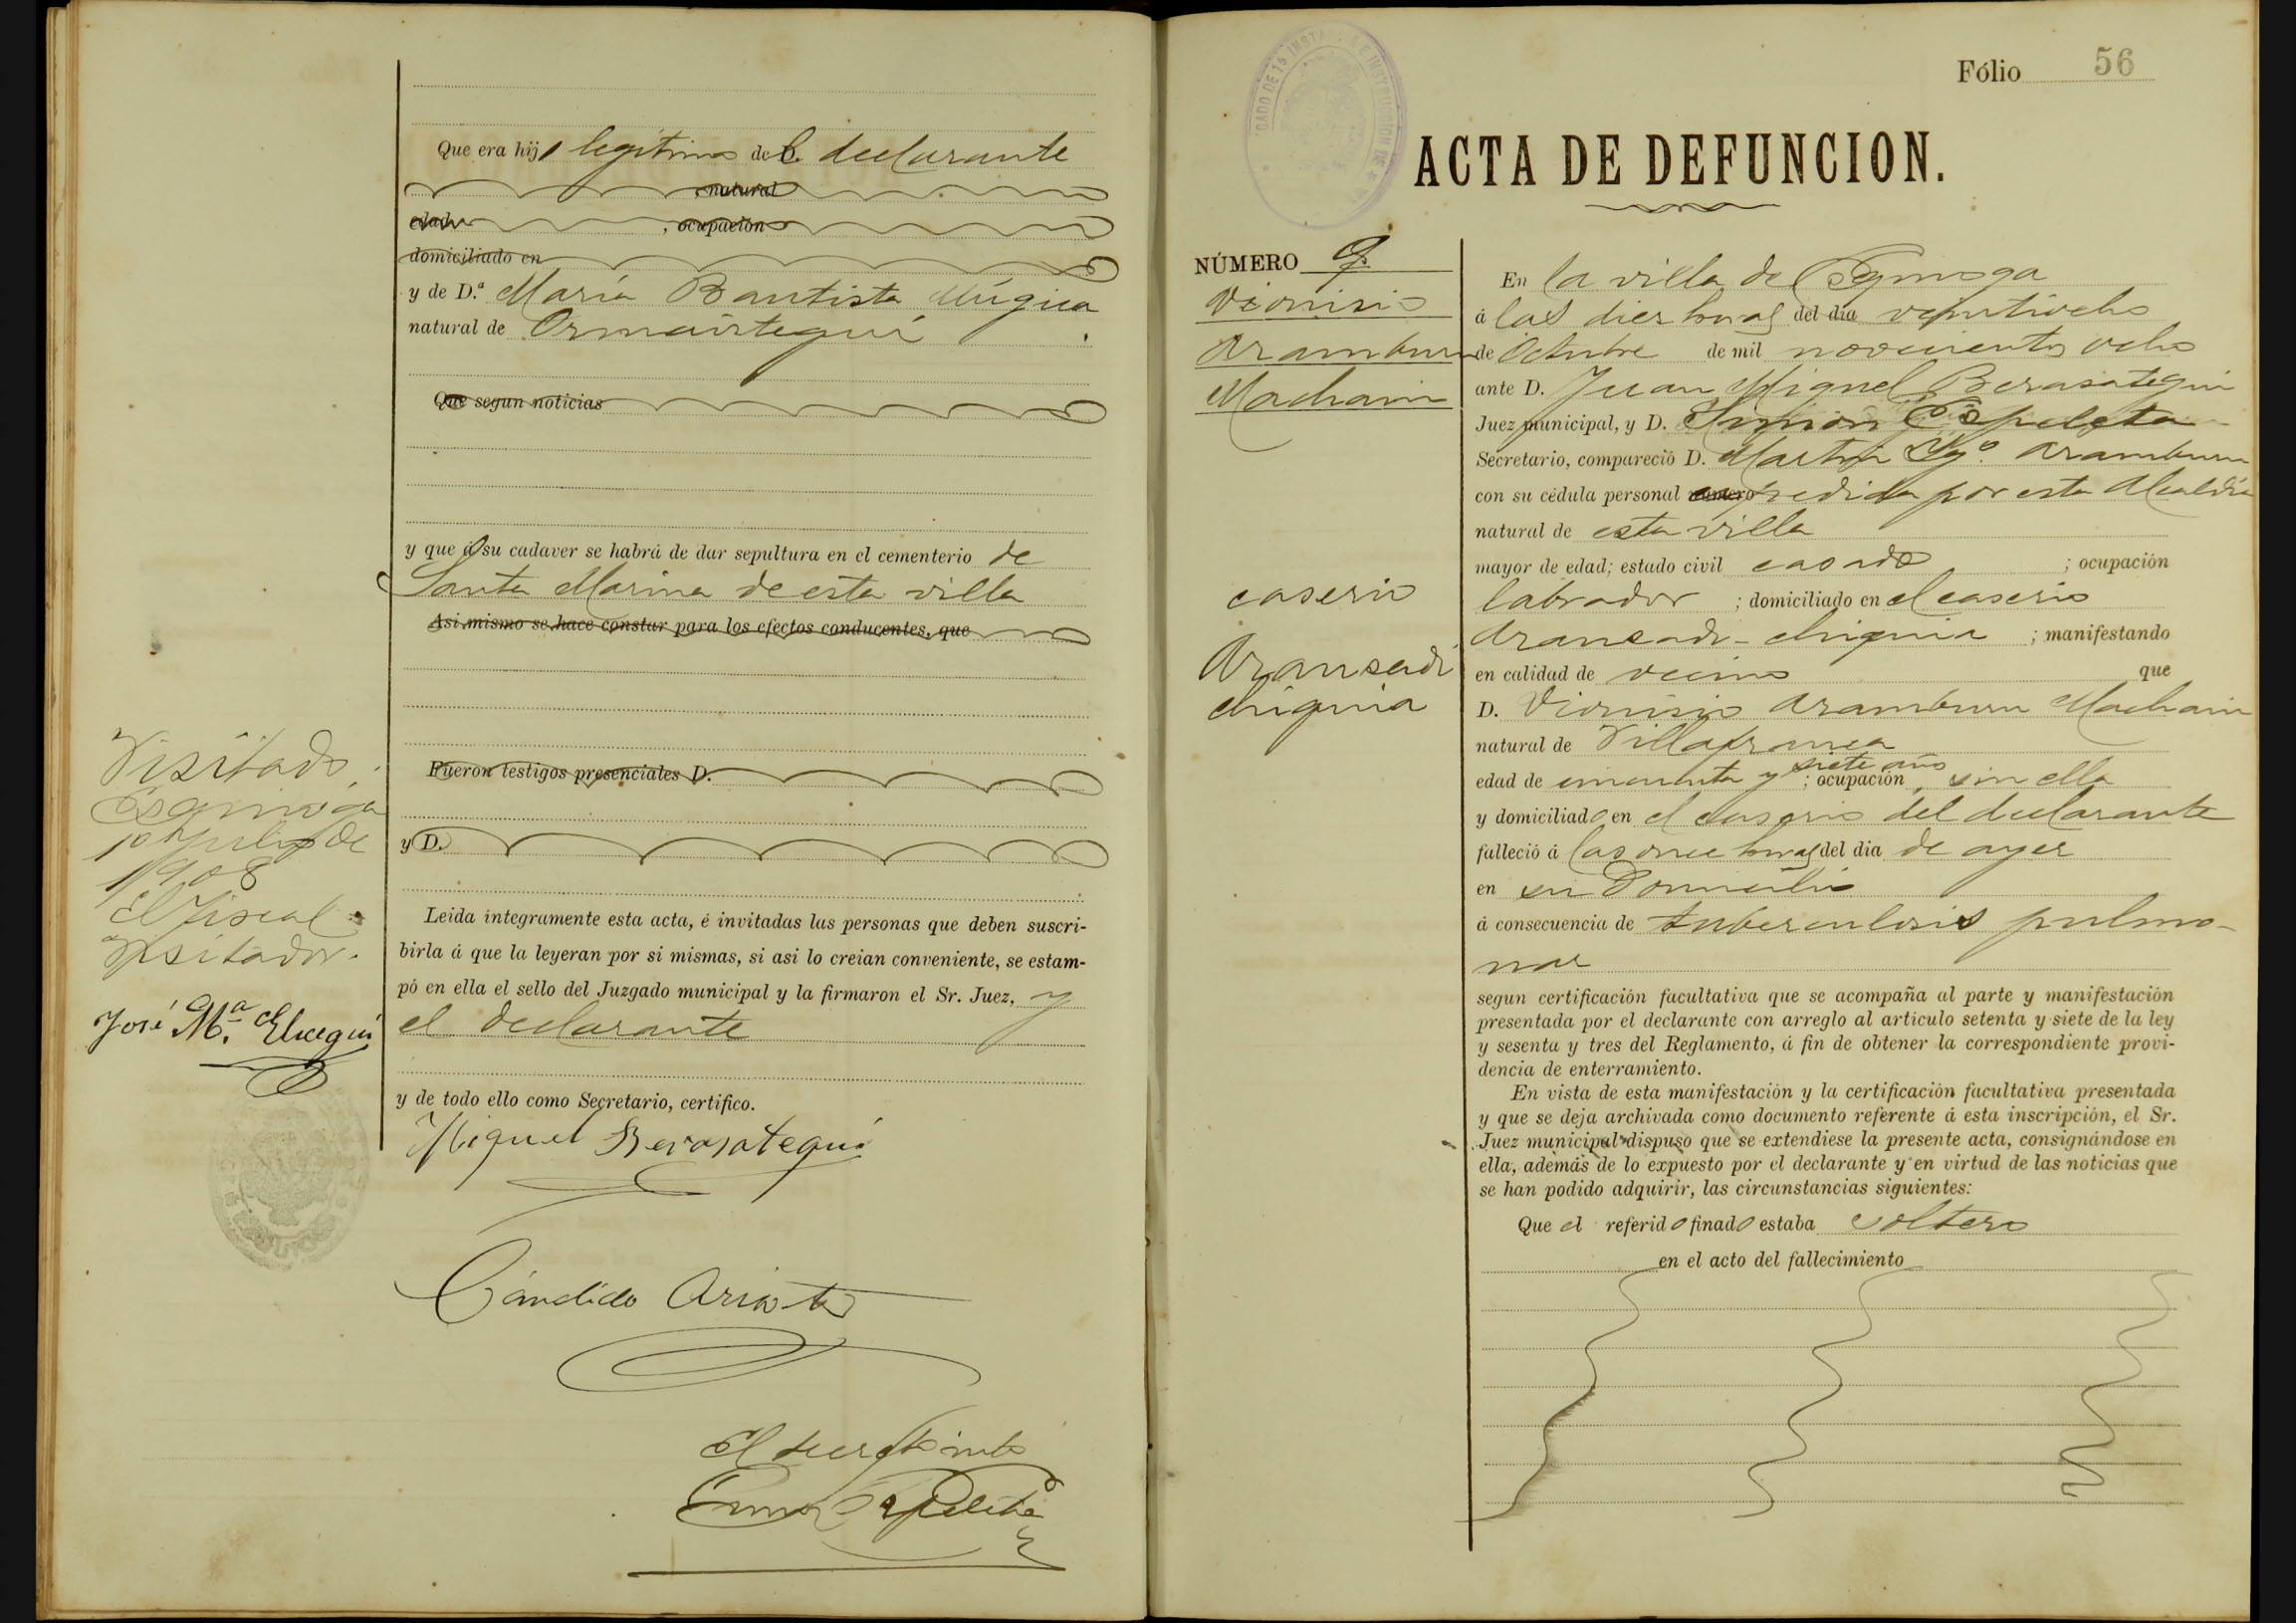 Que era hijo legítimo del declarante
natural
edad , ocupación
domiciliado en
y de D.ª María Bautista Múgica
natural de Ormaiztegui
Que segun noticias
y que á su cadaver se habrá de dar sepultura en el cementerio de
Santa Marina de esta villa
Asi mismo se hace constar para los efectos conducentes, que
Fueron testigos presenciales D.
y D.
Leida íntegramente esta acta, é invitadas las personas que deben suscri-
birla á que la leyeran por si mismas, si asi lo creian conveniente, se estam-
pó en ella el sello del Juzgado municipal y la firmaron el Sr. Juez, y
el declarante
y de todo ello como Secretario, certifico.
Miguel Berasategui
Cándido Arista
El
Visitado.
Esquioga
10 Julio de
1908
El Fiscal
Visitador.
José M.ª Elicegui
Fólio 56
ACTA DE DEFUNCION.
NÚMERO 9.
Dionisio
Aramburu
Machain
caserio
Aranzadi
chiquia
En la villa de Ezquioga
á las diez horas del dia veintiocho
de Octubre de mil novecientos ocho
ante D. Juan Miguel Berasategui
Juez municipal, y D. Simón Espeleta
Secretario, compareció D. Martín Ig.º Aramburu
con su cédula personal número expedida por esta Alcaldía
natural de esta villa
mayor de edad; estado civil casado ; ocupación
labrador ; domiciliado en el caserio
Aranzadi-chiquia ; manifestando
en calidad de vecino que
D. Dionisio Aramburu Machain
natural de Villafranca
edad de cincuenta y siete años ; ocupación sin ella
y domiciliado en el caserio del declarante
falleció á las once horas del dia de ayer
en su Domicilio
á consecuencia de tuberculosis pulmo-
nar
segun certificación facultativa que se acompaña al parte y manifestación
presentada por el declarante con arreglo al articulo setenta y siete de la ley
y sesenta y tres del Reglamento, á fin de obtener la correspondiente provi-
dencia de enterramiento.
En vista de esta manifestación y la certificación facultativa presentada
y que se deja archivada como documento referente á esta inscripción, el Sr.
Juez municipal dispuso que se extendiese la presente acta, consignándose en
ella, además de lo expuesto por el declarante y en virtud de las noticias que
se han podido adquirir, las circunstancias siguientes:
Que el referido finado estaba soltero
en el acto del fallecimiento